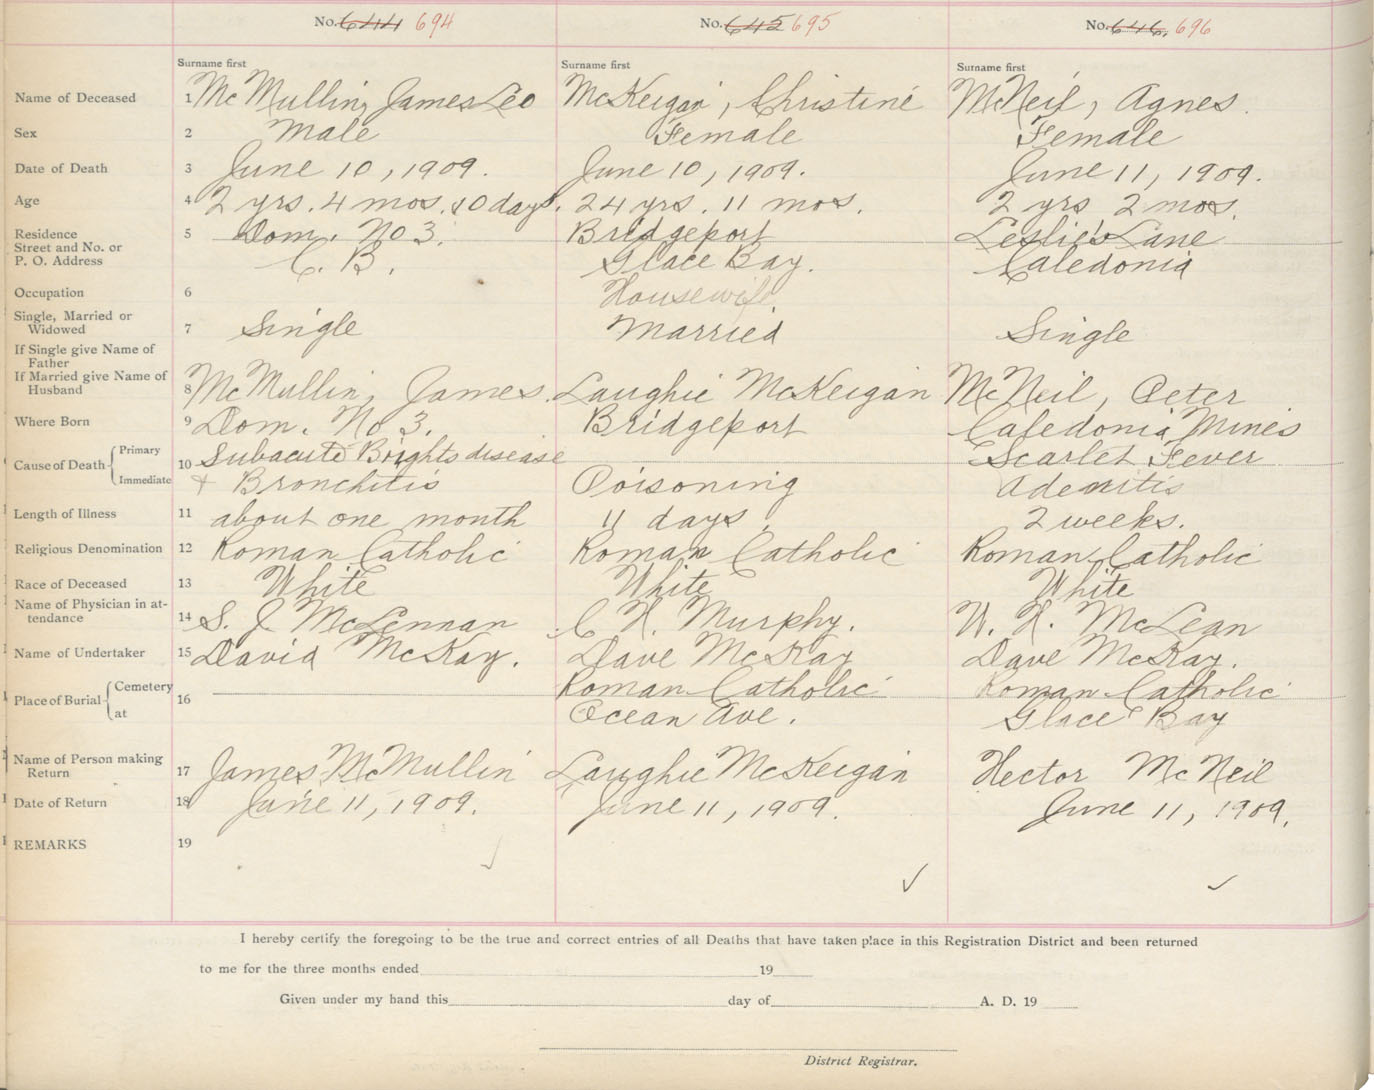 No. 644 694
No. 645 695
No. 646. 696
Surname first
Surname first
Surname first
Name of Deceased 1 McMullin, James Leo McKeigan, Christine McNeil, Agnes.
Sex 2 Male Female Female
Date of Death 3 June 10, 1909. June 10, 1909. June 11, 1909.
Age 4 2 yrs. 4 mos. 10 days. 24 yrs. 11 mos. 2 yrs 2 mos.
Residence 5 Dom. No 3. Bridgeport Leslie's Lane
Street and No. or
P. O. Address C. B. Glace Bay. Caledonia
Occupation 6 Housewife
Single, Married or
Widowed 7 Single Married Single
If Single give Name of
Father
If Married give Name of
Husband 8 McMullin, James. Laughie McKeigan McNeil, Peter
Where Born 9 Dom. No 3. Bridgeport Caledonia Mines
Cause of Death { Primary 10 Subacute Brights disease Scarlet Fever
Immediate & Bronchitis Poisoning Adenitis
Length of Illness 11 about one month 11 days. 2 weeks.
Religious Denomination 12 Roman Catholic Roman Catholic Roman Catholic
Race of Deceased 13 White White White
Name of Physician in at-
tendance 14 S. J. McLennan C. H. Murphy. W. H. McLean
Name of Undertaker 15 David McKay. Dave McKay Dave McKay.
Place of Burial { Cemetery 16 Roman Catholic Roman Catholic
at Ocean Ave. Glace Bay
Name of Person making
Return 17 James McMullin Laughie McKeigan Hector McNeil
Date of Return 18 June 11, 1909. June 11, 1909. June 11, 1909.
REMARKS 19
I hereby certify the foregoing to be the true and correct entries of all Deaths that have taken place in this Registration District and been returned
to me for the three months ended 19
Given under my hand this day of A. D. 19
District Registrar.